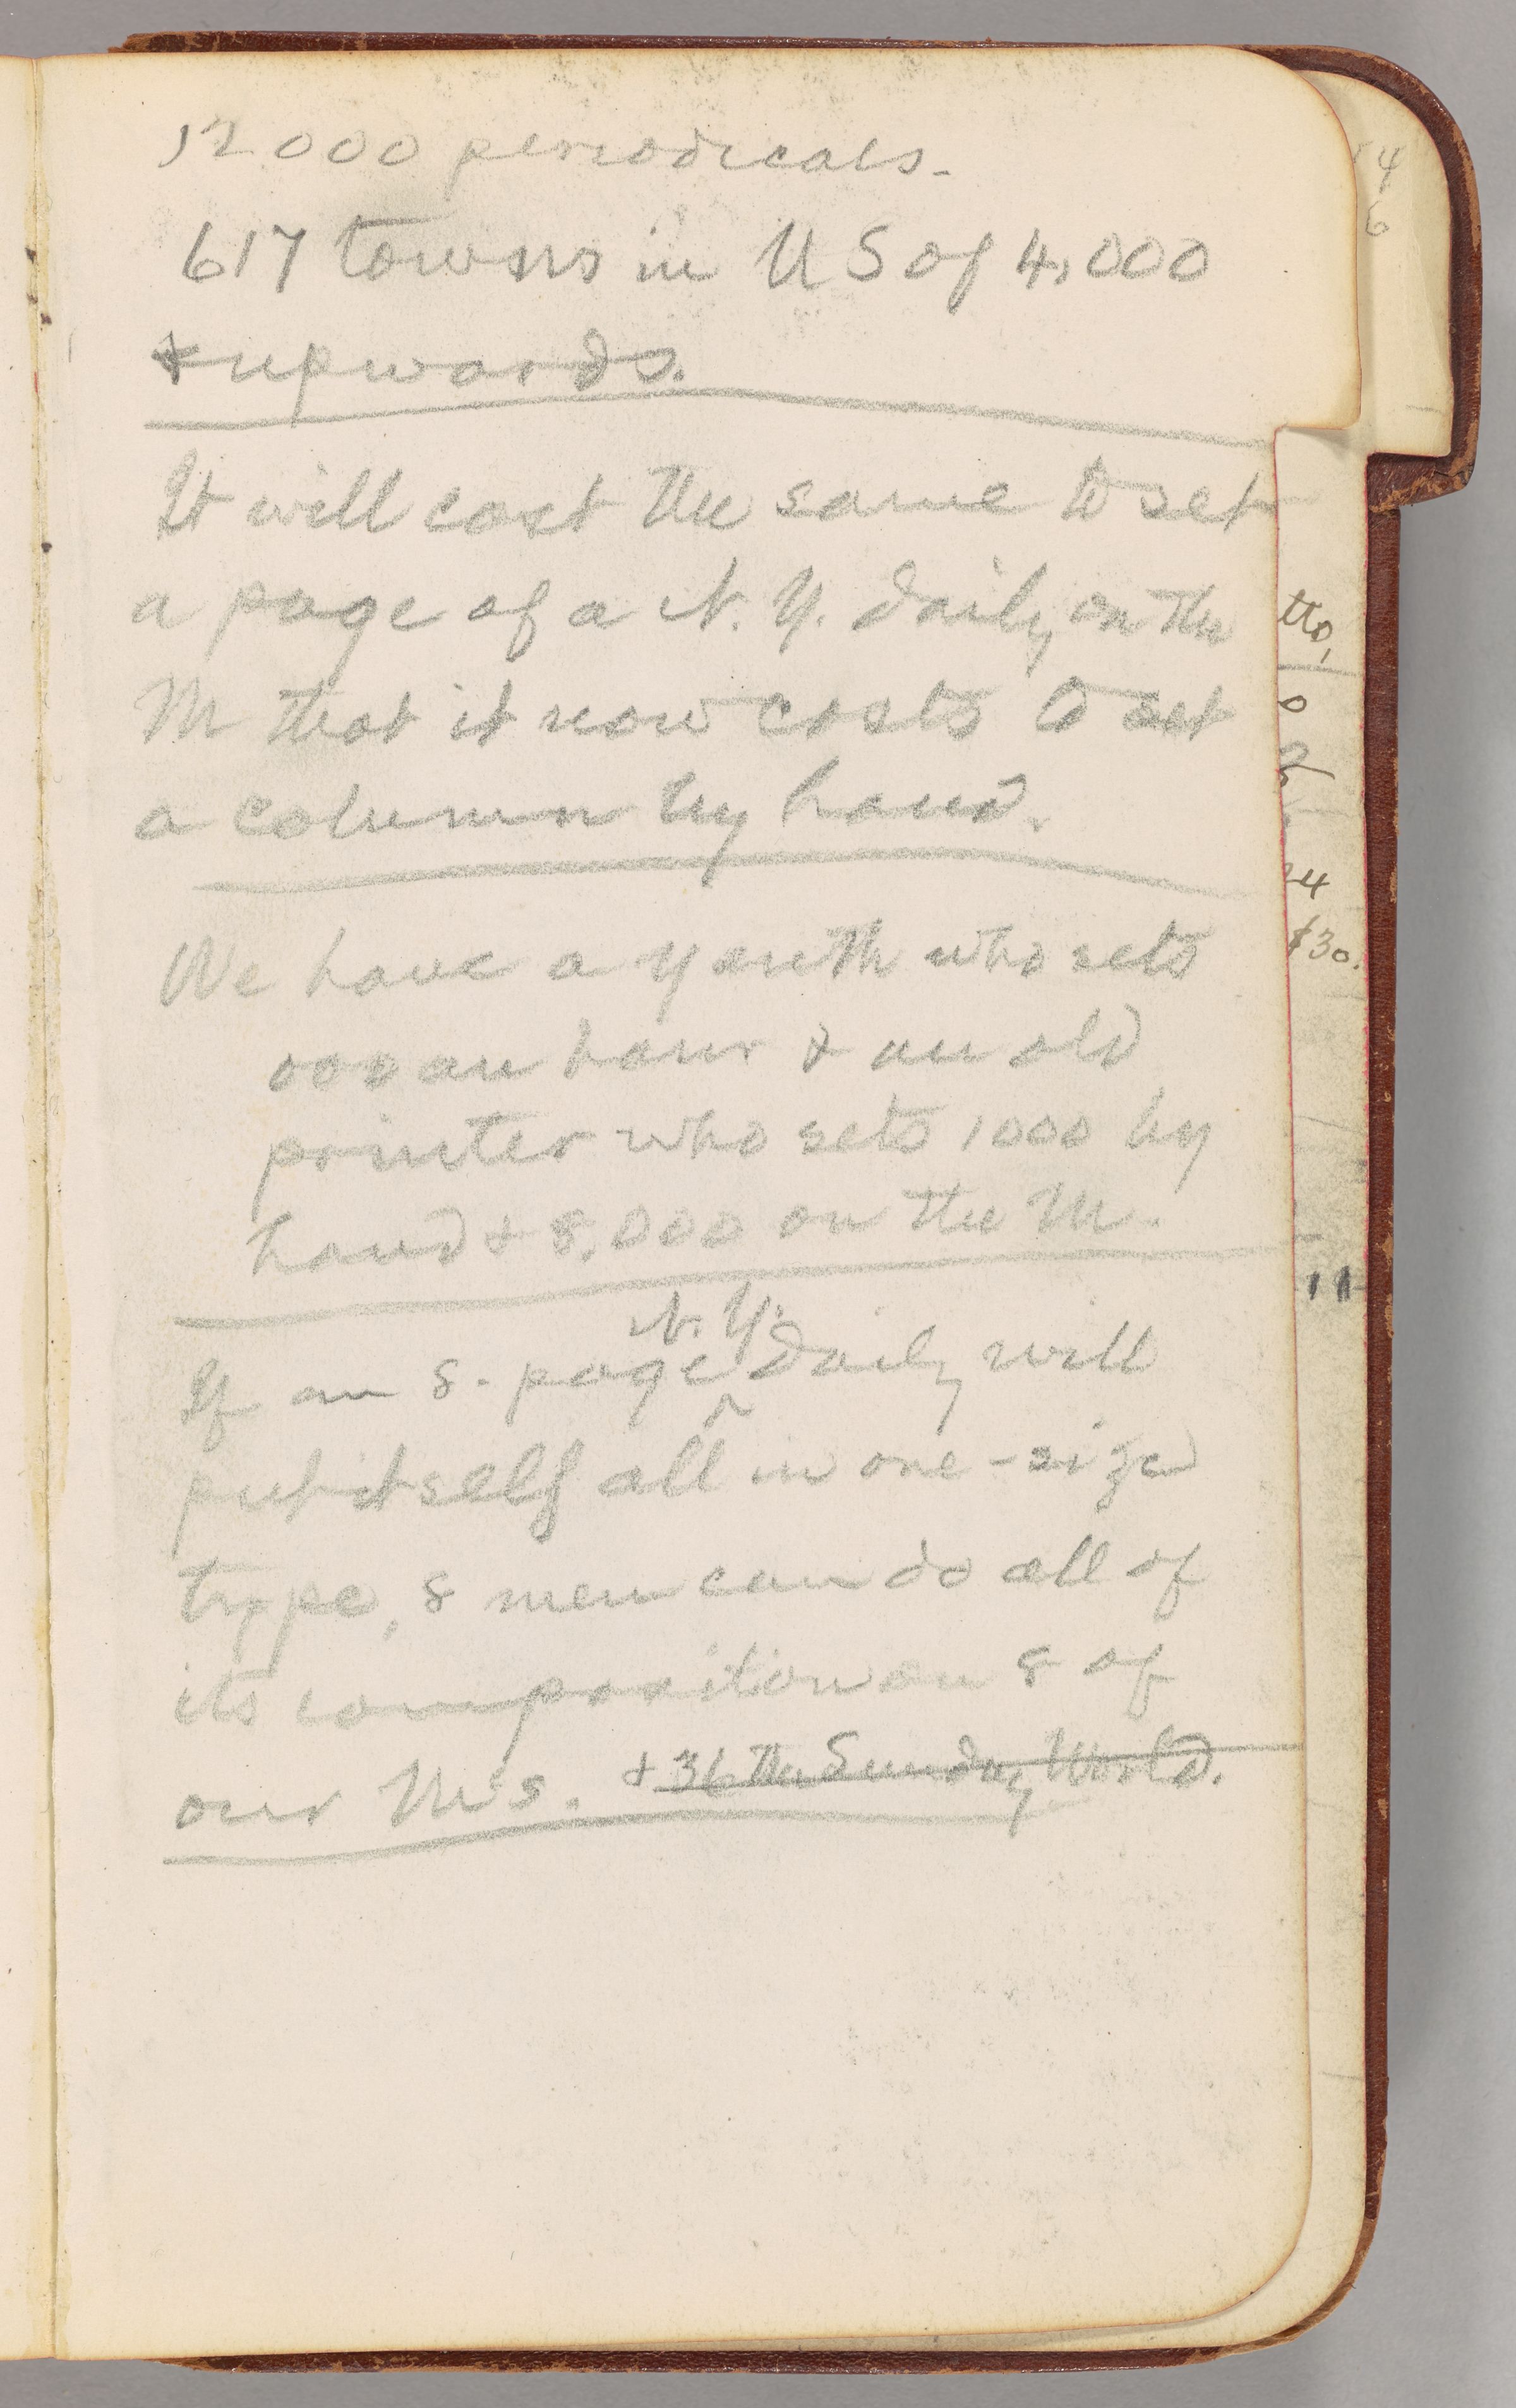 12000 periodicals.
617 towns in U S of 4,000
& upwards.
It will cost the same to set
a page of a N. Y. daily on the
M that it now costs to set
a column by hand.
We have a youth who sets
000 an hour & an old
printer who sets 1000 by
hand & 8,000 on the M.
N. Y.
If an 8-page daily will
put itself all in one-sized
type, 8 men can do all of
its composition on 8 of
our M's. & 36 the Sunday World.
4
6
tto,
24
$30.
11